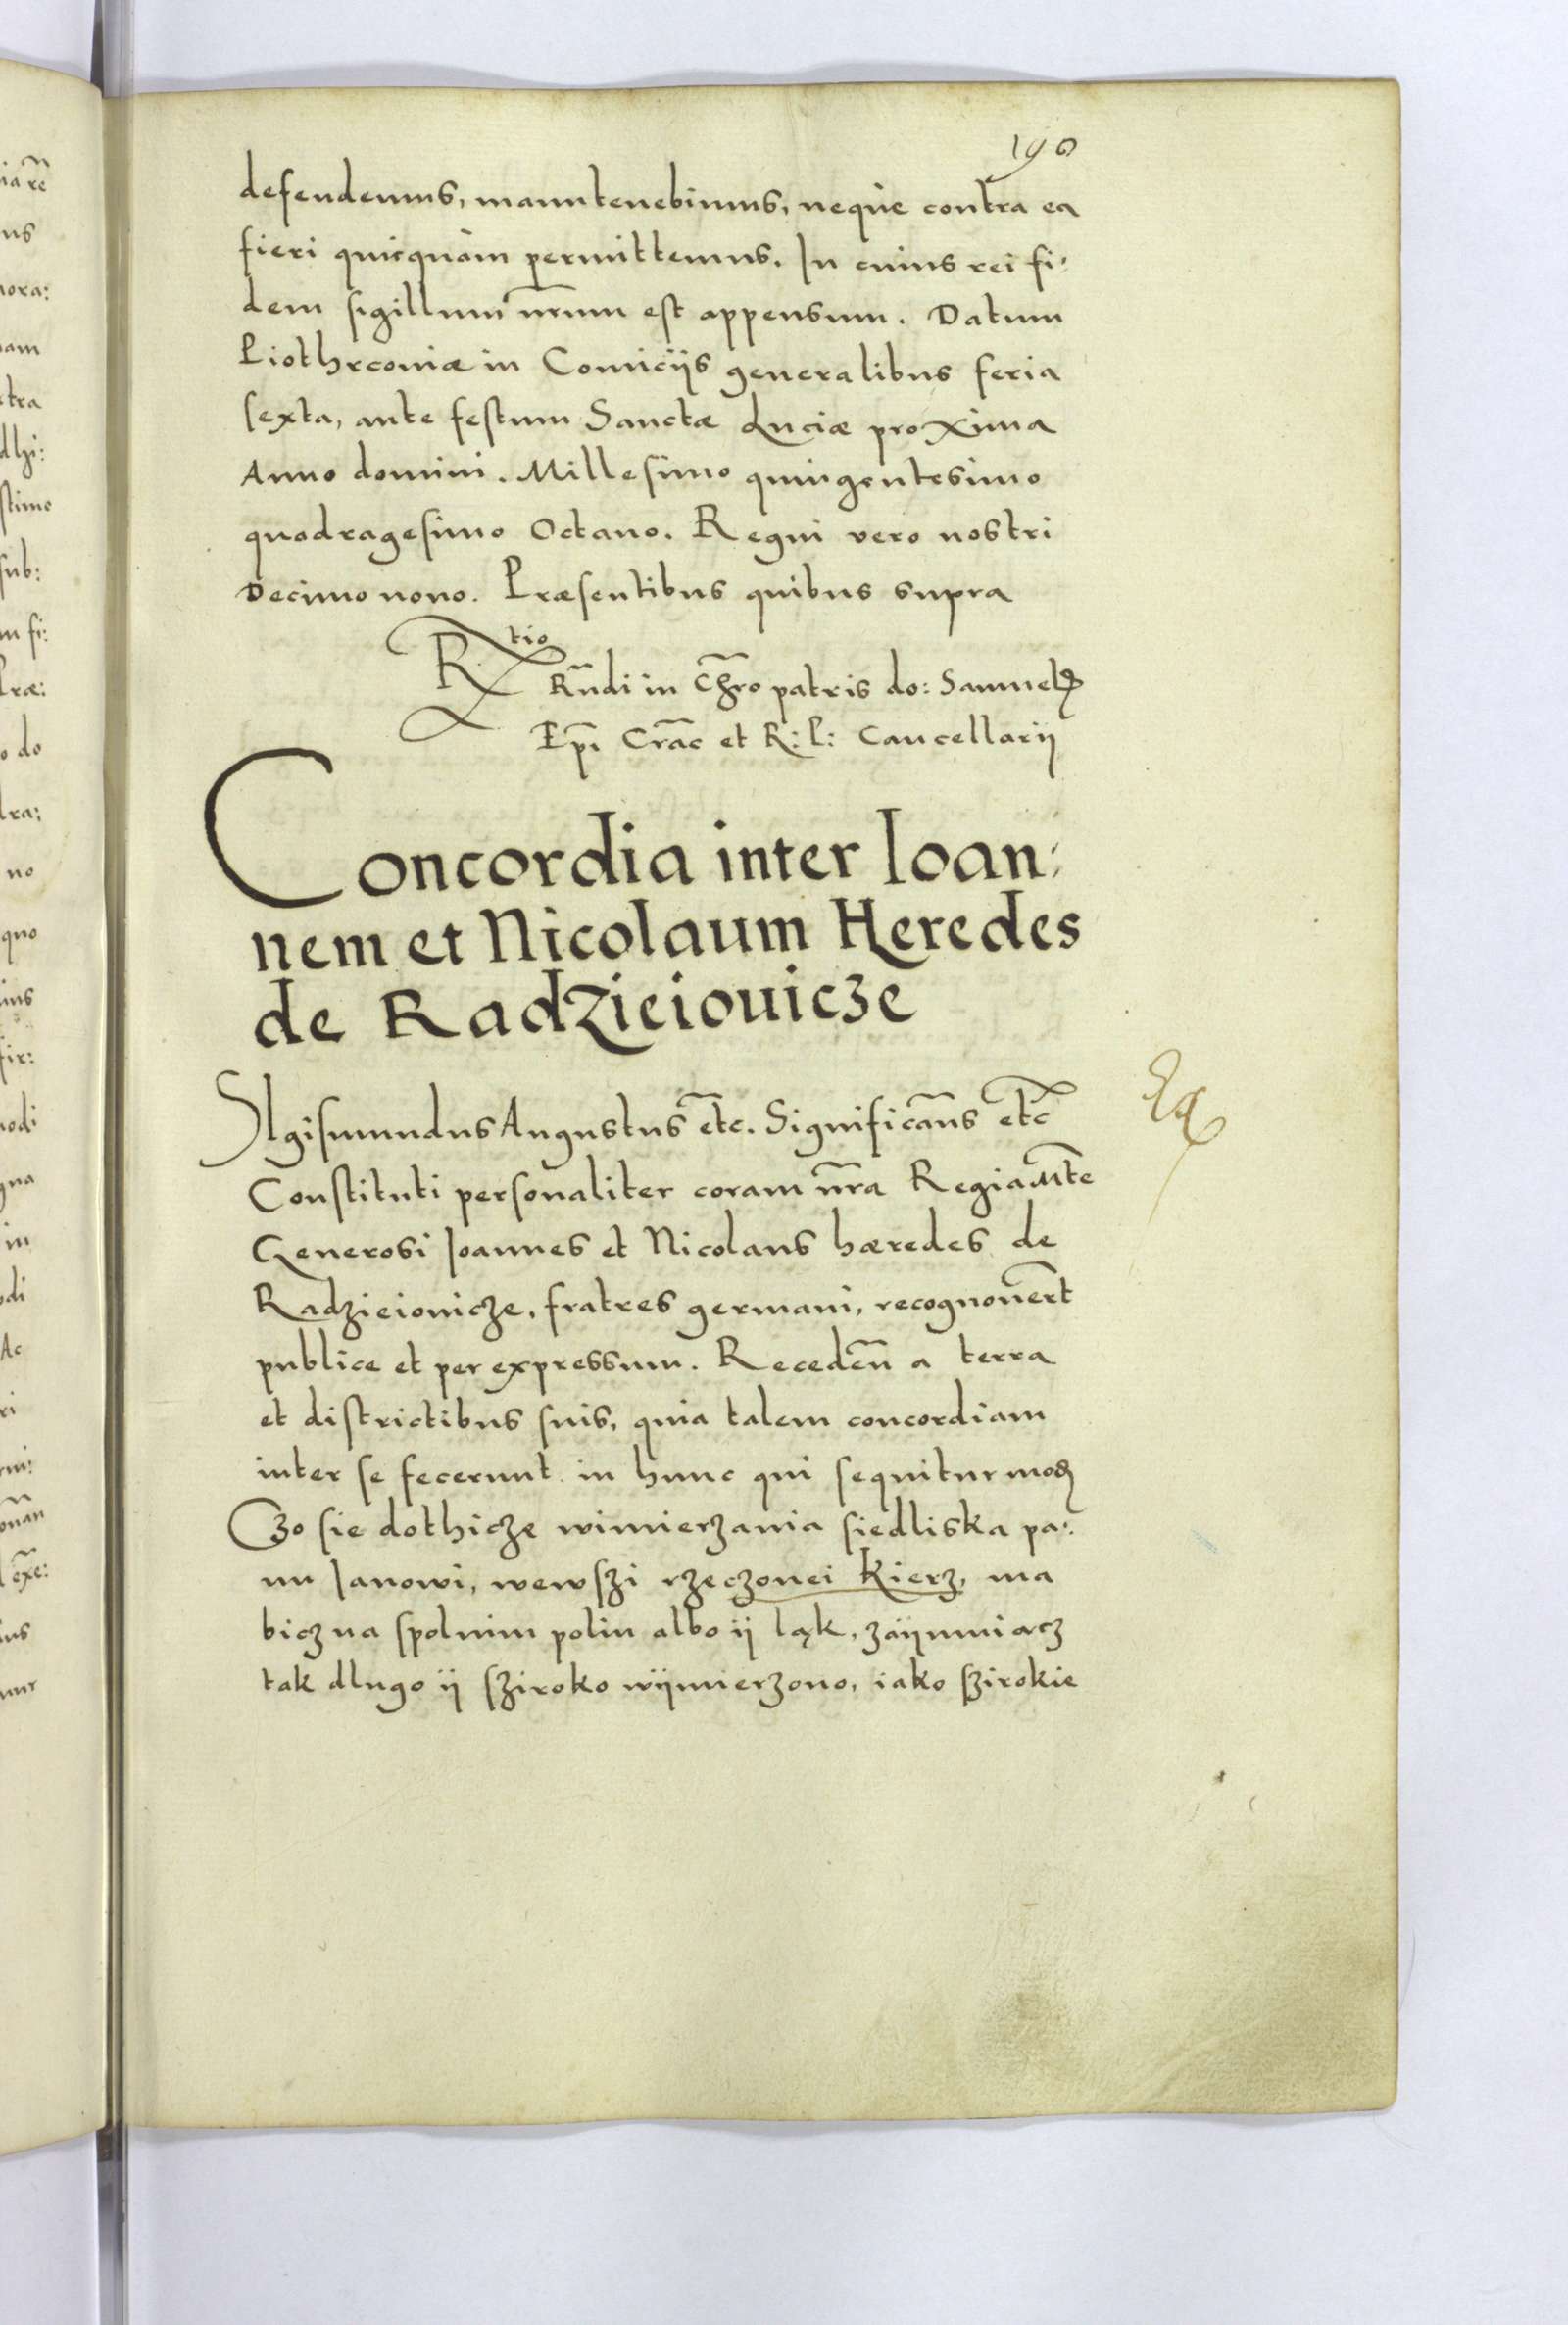 190
defendemus, manutenebimus, neque contra ea
fieri quicquam permittemus. In cuius rei fi:
dem sigillum nr̃um est appensum. Datum
Piothrconiæ in Comicijs generalibus feria
sexta, ante festum Sanctæ Luciæ proxima
Anno domini. Millesimo quingentesimo
quadragesimo Octauo. Regni vero nostri
Decimo nono. Præsentibus quibus supra
Rtio
Rñdi in Chr̃o patris do: Samuelꝭ
Ep̃i Crac̃ et R: P: Cancellarij
Concordia inter Ioan:
nem et Nicolaum Heredes
de Radzieiouicze
Sigismundus Augustus et̃c. Significam̃us et̃c
Constituti personaliter coram nr̃a Regia Mt̃e
Generosi Ioannes et Nicolaus hæredes de
Radzieiouicze, fratres germani, recognouer̃t
publice et per expressum. Receden̄ a terra
et districtibus suis, quia talem concordiam
inter se fecerunt in hunc qui sequitur moꝺ
Czo sie dothicze wimierzania siedliska pa:
nu Ianowi, wewszi rzeczonei Kierz, ma
bicz na spolnim poliu albo ij ląk, zaijmuiącz
tak dlugo ij sziroko wijmierzono, iako szirokie